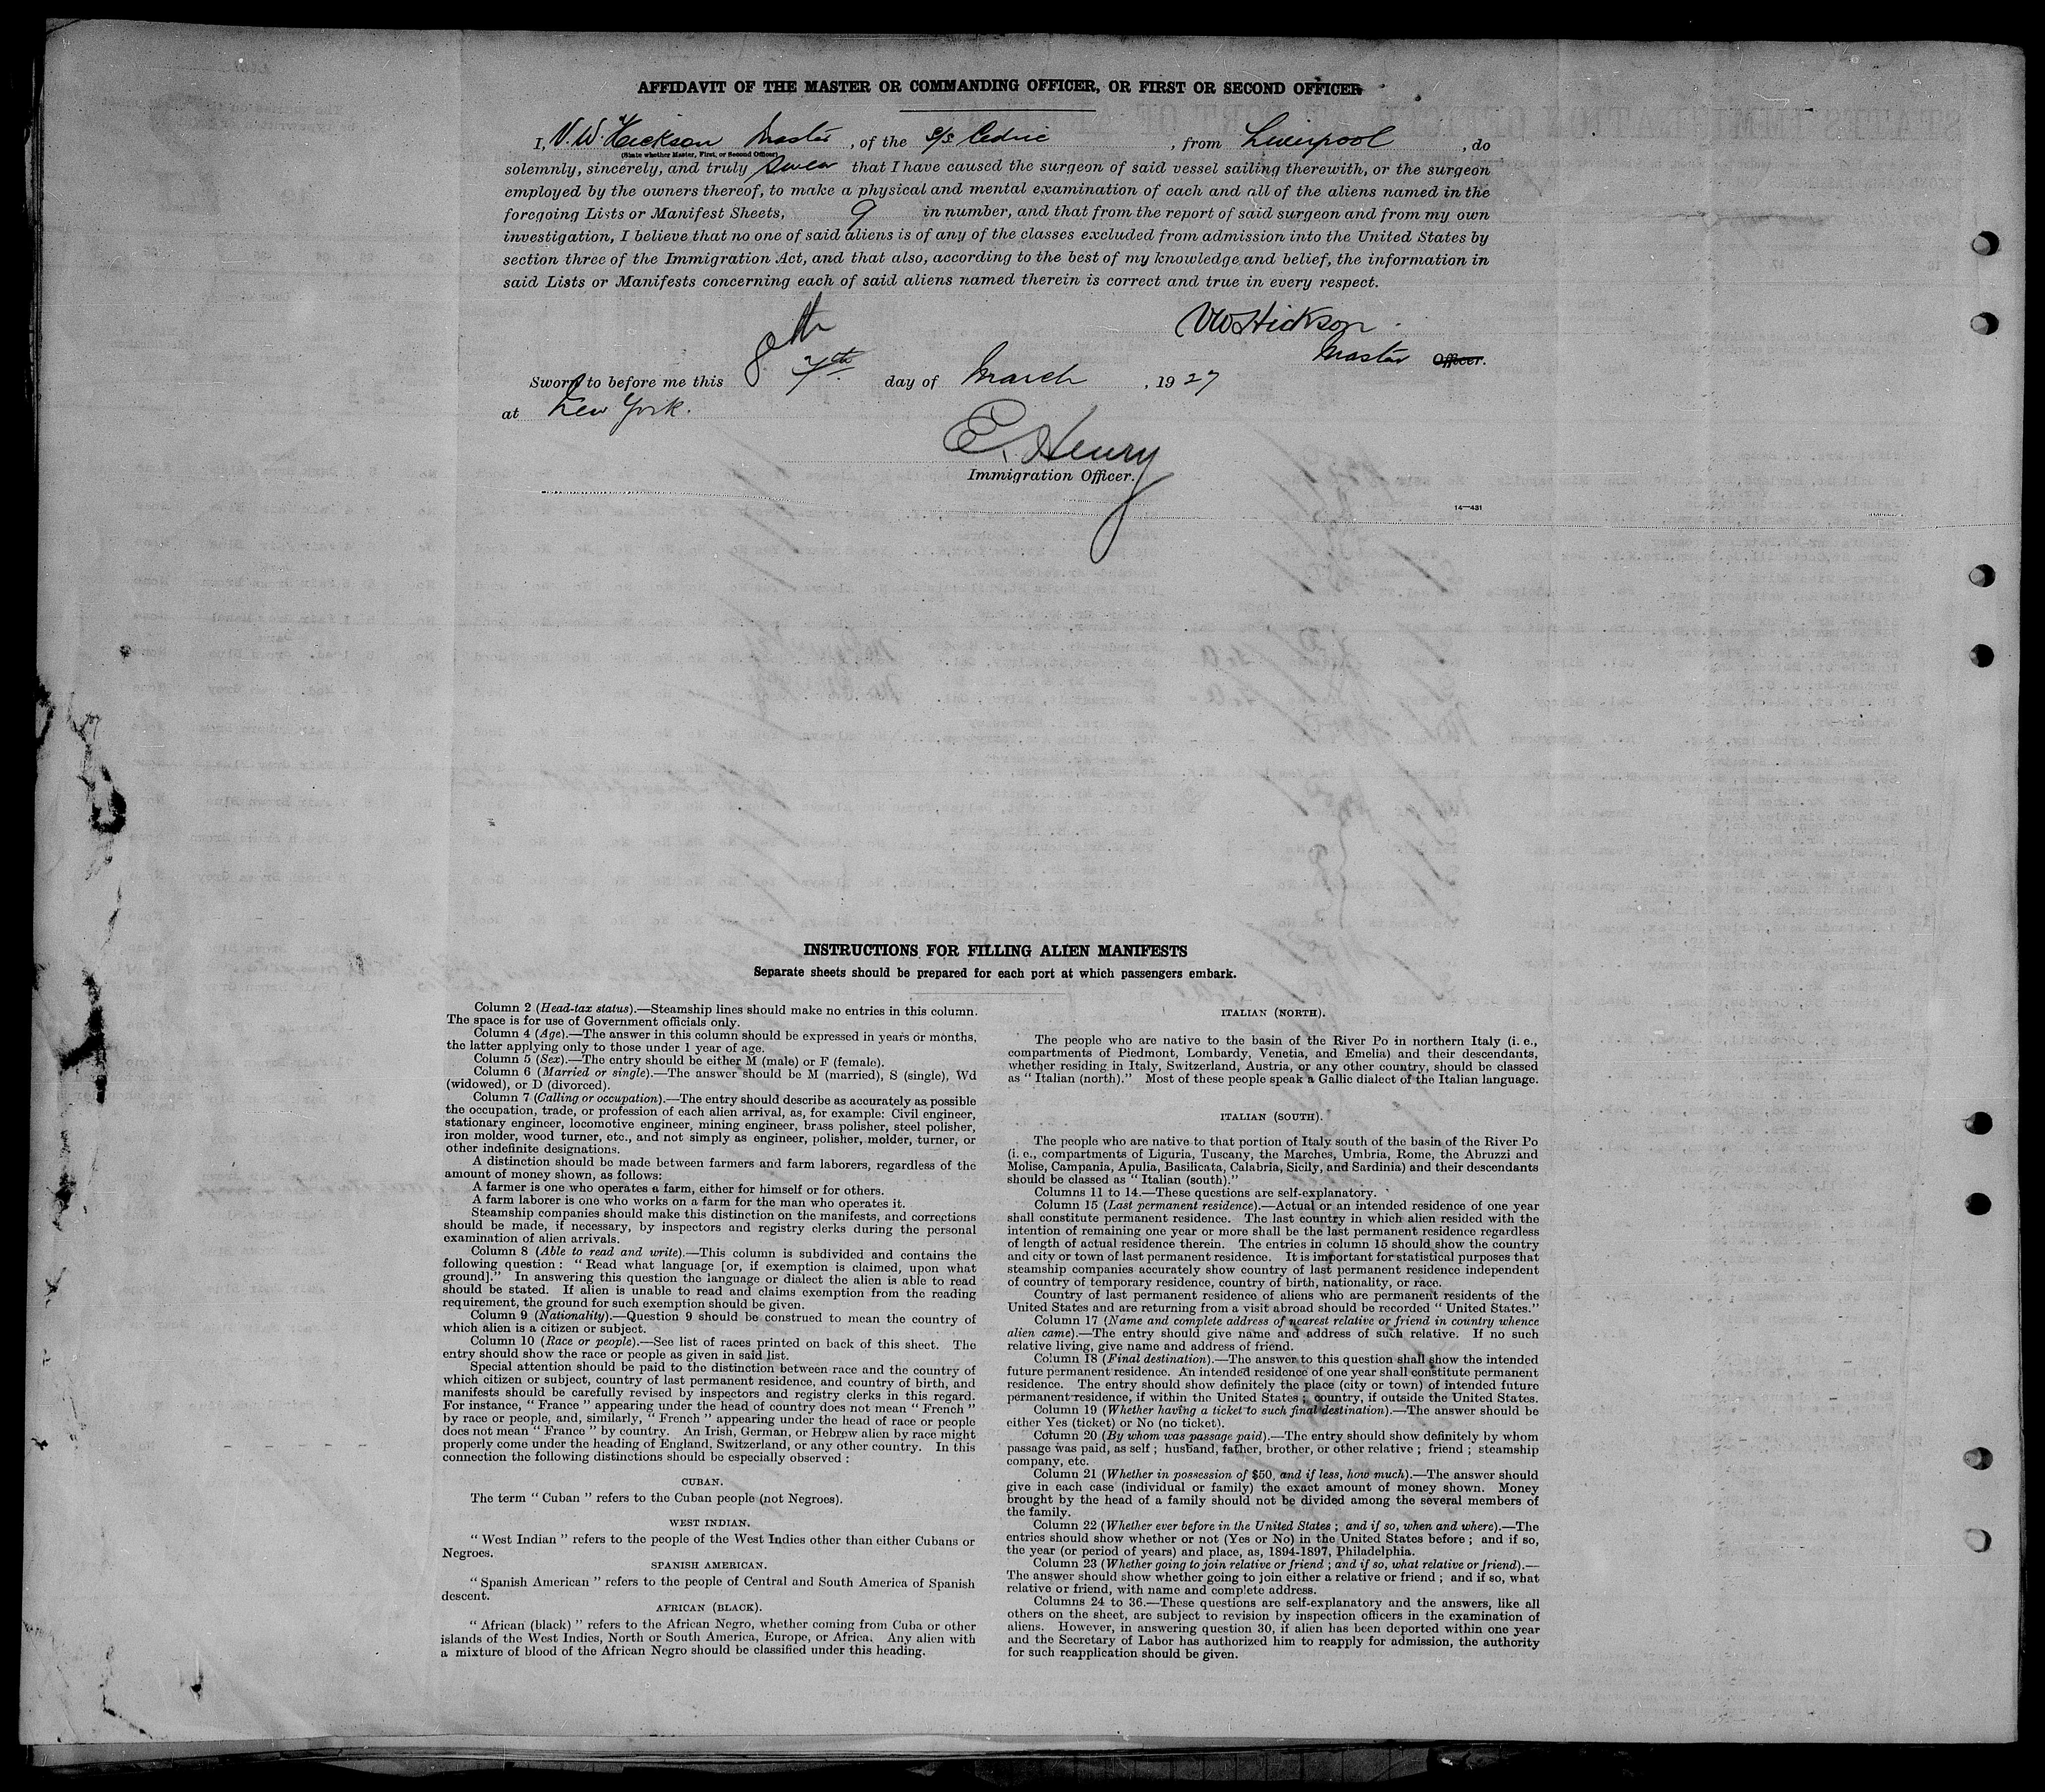 AFFIDAVIT OF THE MASTER OR COMMANDING OFFICER, OR FIRST OR SECOND OFFICER
I, V. W. Hickson Master, of the s/s Cedric, from Liverpool, do
(State whether Master, First, or Second Officer)
solemnly, sincerely, and truly swear that I have caused the surgeon of said vessel sailing therewith, or the surgeon
employed by the owners thereof, to make a physical and mental examination of each and all of the aliens named in the
foregoing Lists or Manifest Sheets, 9 in number, and that from the report of said surgeon and from my own
investigation, I believe that no one of said aliens is of any of the classes excluded from admission into the United States by
section three of the Immigration Act, and that also, according to the best of my knowledge and belief, the information in
said Lists or Manifests concerning each of said aliens named therein is correct and true in every respect.
VWHickson
Master Officer.
8th
Sworn to before me this 7th. day of March, 1927
at New York.
E. Henry
Immigration Officer.
14—431
INSTRUCTIONS FOR FILLING ALIEN MANIFESTS
Separate sheets should be prepared for each port at which passengers embark.
Column 2 (Head-tax status).—Steamship lines should make no entries in this column.
The space is for use of Government officials only.
Column 4 (Age).—The answer in this column should be expressed in years or months,
the latter applying only to those under 1 year of age.
Column 5 (Sex).—The entry should be either M (male) or F (female).
Column 6 (Married or single).—The answer should be M (married), S (single), Wd
(widowed), or D (divorced).
Column 7 (Calling or occupation).—The entry should describe as accurately as possible
the occupation, trade, or profession of each alien arrival, as, for example: Civil engineer,
stationary engineer, locomotive engineer, mining engineer, brass polisher, steel polisher,
iron molder, wood turner, etc., and not simply as engineer, polisher, molder, turner, or
other indefinite designations.
A distinction should be made between farmers and farm laborers, regardless of the
amount of money shown, as follows:
A farmer is one who operates a farm, either for himself or for others.
A farm laborer is one who works on a farm for the man who operates it.
Steamship companies should make this distinction on the manifests, and corrections
should be made, if necessary, by inspectors and registry clerks during the personal
examination of alien arrivals.
Column 8 (Able to read and write).—This column is subdivided and contains the
following question: “Read what language [or, if exemption is claimed, upon what
ground].” In answering this question the language or dialect the alien is able to read
should be stated. If alien is unable to read and claims exemption from the reading
requirement, the ground for such exemption should be given.
Column 9 (Nationality).—Question 9 should be construed to mean the country of
which alien is a citizen or subject.
Column 10 (Race or people).—See list of races printed on back of this sheet. The
entry should show the race or people as given in said list.
Special attention should be paid to the distinction between race and the country of
which citizen or subject, country of last permanent residence, and country of birth, and
manifests should be carefully revised by inspectors and registry clerks in this regard.
For instance, “France” appearing under the head of country does not mean “French”
by race or people, and, similarly, “French” appearing under the head of race or people
does not mean “France” by country. An Irish, German, or Hebrew alien by race might
properly come under the heading of England, Switzerland, or any other country. In this
connection the following distinctions should be especially observed:
CUBAN.
The term “Cuban” refers to the Cuban people (not Negroes).
WEST INDIAN.
“West Indian” refers to the people of the West Indies other than either Cubans or
Negroes.
SPANISH AMERICAN.
“Spanish American” refers to the people of Central and South America of Spanish
descent.
AFRICAN (BLACK).
“African (black)” refers to the African Negro, whether coming from Cuba or other
islands of the West Indies, North or South America, Europe, or Africa. Any alien with
a mixture of blood of the African Negro should be classified under this heading.
ITALIAN (NORTH).
The people who are native to the basin of the River Po in northern Italy (i. e.,
compartments of Piedmont, Lombardy, Venetia, and Emelia) and their descendants,
whether residing in Italy, Switzerland, Austria, or any other country, should be classed
as “Italian (north).” Most of these people speak a Gallic dialect of the Italian language.
ITALIAN (SOUTH).
The people who are native to that portion of Italy south of the basin of the River Po
(i. e., compartments of Liguria, Tuscany, the Marches, Umbria, Rome, the Abruzzi and
Molise, Campania, Apulia, Basilicata, Calabria, Sicily, and Sardinia) and their descendants
should be classed as “Italian (south).”
Columns 11 to 14.—These questions are self-explanatory.
Column 15 (Last permanent residence).—Actual or an intended residence of one year
shall constitute permanent residence. The last country in which alien resided with the
intention of remaining one year or more shall be the last permanent residence regardless
of length of actual residence therein. The entries in column 15 should show the country
and city or town of last permanent residence. It is important for statistical purposes that
steamship companies accurately show country of last permanent residence independent
of country of temporary residence, country of birth, nationality, or race.
Country of last permanent residence of aliens who are permanent residents of the
United States and are returning from a visit abroad should be recorded “United States.”
Column 17 (Name and complete address of nearest relative or friend in country whence
alien came).—The entry should give name and address of such relative. If no such
relative living, give name and address of friend.
Column 18 (Final destination).—The answer to this question shall show the intended
future permanent residence. An intended residence of one year shall constitute permanent
residence. The entry should show definitely the place (city or town) of intended future
permanent residence, if within the United States; country, if outside the United States.
Column 19 (Whether having a ticket to such final destination).—The answer should be
either Yes (ticket) or No (no ticket).
Column 20 (By whom was passage paid).—The entry should show definitely by whom
passage was paid, as self; husband, father, brother, or other relative; friend; steamship
company, etc.
Column 21 (Whether in possession of $50, and if less, how much).—The answer should
give in each case (individual or family) the exact amount of money shown. Money
brought by the head of a family should not be divided among the several members of
the family.
Column 22 (Whether ever before in the United States; and if so, when and where).—The
entries should show whether or not (Yes or No) in the United States before; and if so,
the year (or period of years) and place, as, 1894-1897, Philadelphia.
Column 23 (Whether going to join relative or friend; and if so, what relative or friend).—
The answer should show whether going to join either a relative or friend; and if so, what
relative or friend, with name and complete address.
Columns 24 to 36.—These questions are self-explanatory and the answers, like all
others on the sheet, are subject to revision by inspection officers in the examination of
aliens. However, in answering question 30, if alien has been deported within one year
and the Secretary of Labor has authorized him to reapply for admission, the authority
for such reapplication should be given.